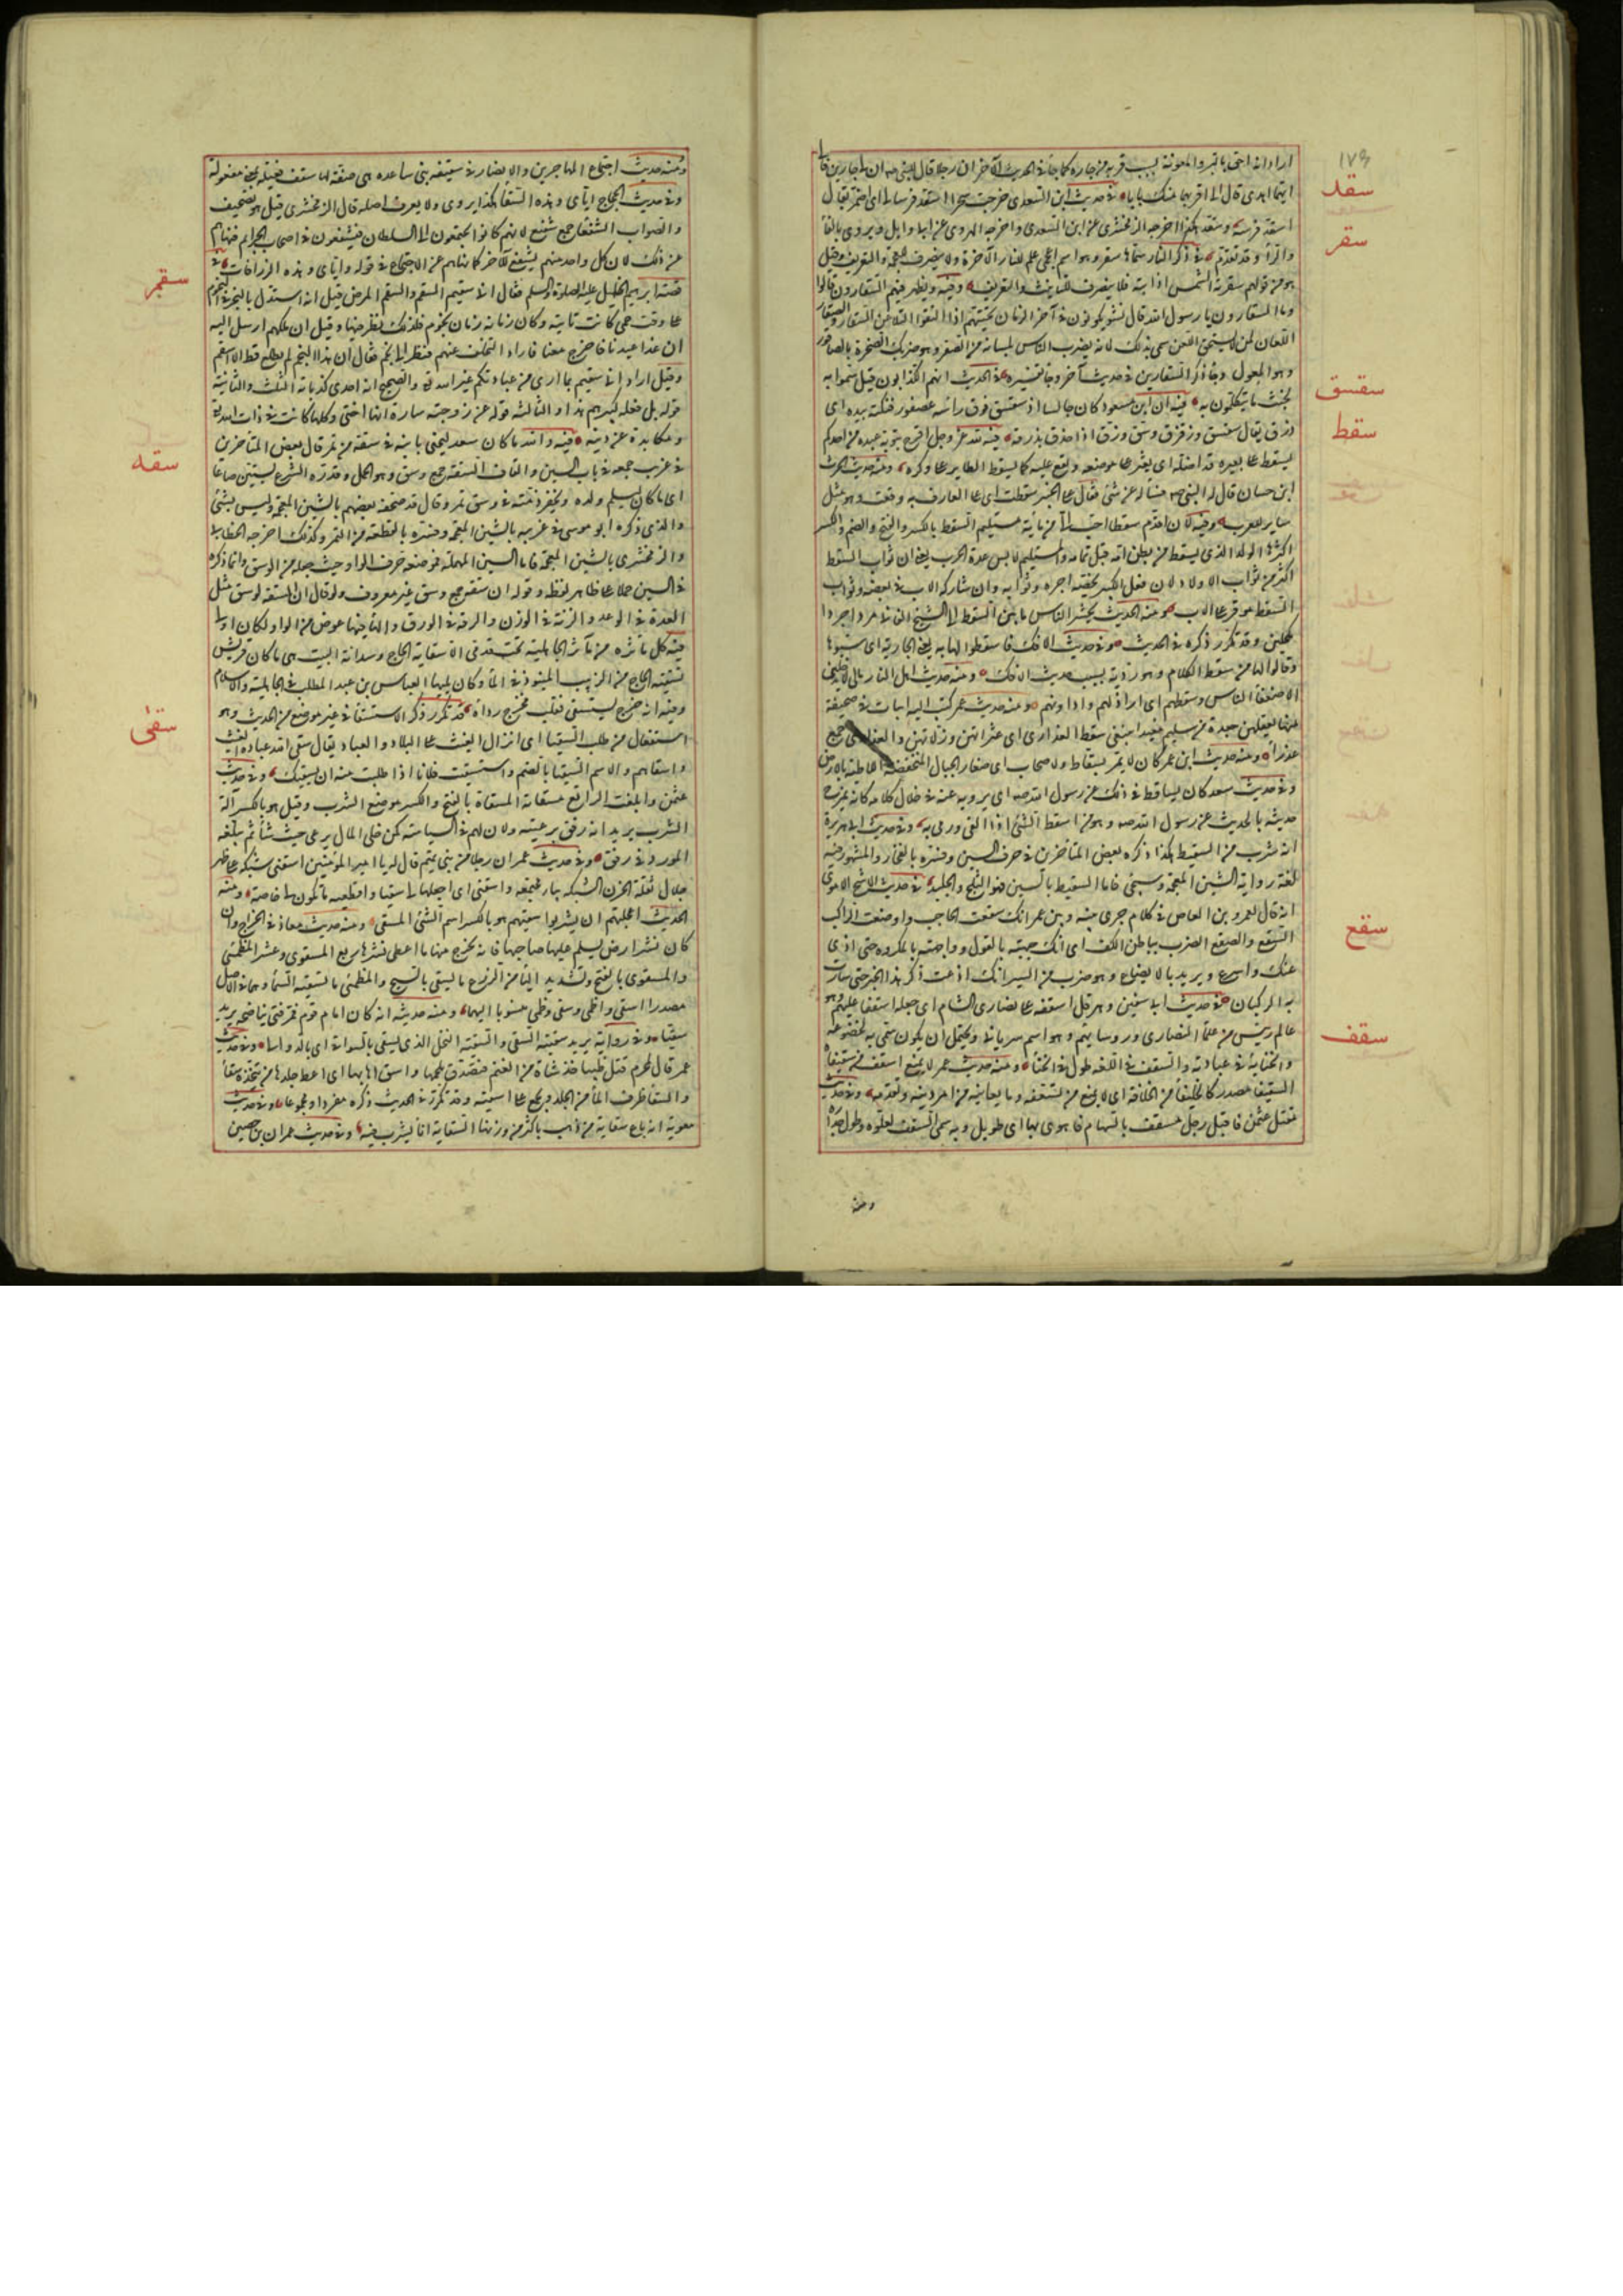 ١٧٩
اراد انه احق بالبر والمعونة بسبب قربه من جاره كما جاء في الحديث الآخر ان رجلا قال للنبي ان لي جارين فالى
ايهما اهدي قال الى اقربهما منك بابا في حديث ابن السعدي خرجت سحرا اسقد فرسا لي اي اضمره يقال
سقد
اسقد فرسه وسقده هكذا اخرجه الزمخشري عن ابن السعدي واخرجه الهروي عن ابي وايل ويروى بالفاء
والراء وقد تقدم في ذكر النار سماها سقر وهو اسم اعجمي علم للنار الآخرة ولا ينصرف للعجمة والتعريف وقيل
سقر
هو من قولهم سقرته الشمس اذا اذابته فلا ينصرف للتانيث والتعريف وفيه ويظهر فيهم السقارون قالوا
وما السقارون يا رسول الله قال نشو يكونون في آخر الزمان تحيتهم اذا التقوا التلاعن السقار والصقار
اللعان لمن لا يستحق اللعن سمي بذلك لانه يضرب الناس بلسانه من الصقر وهو ضربك الصخرة بالصاقور
وهو المعول وجاء ذكر السقارين في حديث آخر وجاء تفسيره في الحديث انهم الكذابون قيل سموا به
لخبث ما يتكلمون به فيه ان ابن مسعود كان جالسا اذ سقسق فوق راسه عصفور فنكته بيده اي
سقسق
ذرق يقال سقسق وزقزق وسق وزق اذا حذف بذرقه فيه لله عز وجل افرح بتوبة عبده من احدكم
سقط
يسقط على بعيره قد اضله اي يعثر على موضعه ويقع عليه كما يسقط الطاير على وكره ومنه حديث الحرث
ابن حسان قال له النبي وساله عن شيء فقال على الخبير سقطت اي على العارف به وقعت وهو مثل
ساير للعرب وفيه لان اقدم سقطا احب الي من ماية مستليم السقط بالكسر والفتح والضم والكسر
اكثرها الولد الذي يسقط من بطن امه قبل تمامه والمستليم لابس عدة الحرب يعني ان ثواب السقط
اكثر من ثواب الاولاد لان فعل الكبير يخصه اجره وثوابه وان شاركه الاب في بعضه وثواب
السقط موفر على الاب ومنه الحديث يحشر الناس ما بين السقط الى الشيخ الفاني مردا جردا
مكحلين وقد تكرر ذكره في الحديث وفي حديث الافك فاسقطوا لها به يعني الجارية اي سبوها
وقالوا لها من سقط الكلام وهو رديه بسبب حديث الافك ومنه حديث اهل النار مالي لا يدخلني
الا ضعفاء الناس وسقطهم اي اراذلهم وادوانهم ومنه حديث عمر كتب اليه ابيات في صحيفة
منها يعقلهن جعدة من سليم معيدا يبتغي سقط العذارى اي عثراتهن وزلاتهن والعذارى جمع
عذراء ومنه حديث ابن عمر كان لا يمر بسقاط ولا صحاب اي صغار الجبال المنخفضة اللاطية بالارض
وفي حديث سعد كان يساقط في ذلك عن رسول الله اي يرويه عنه في خلال كلامه كانه يمزج
حديثه بالحديث عن رسول الله وهو من اسقط الشيء اذا القاه ورمى به وفي حديث ابي هريرة
انه شرب من السقيط هكذا ذكره بعض المتاخرين في حرف السين وفسره بالفخار والمشهور فيه
لغة رواية الشين المعجمة وسيجي فاما السقيط بالسين فهو الثلج والجليد في حديث الاشج الاموي
انه قال لعمرو بن العاص في كلام جرى بينه وبين عمر انك سقعت الحاجب واوضعت الراكب
سقع
السقع والصقع الضرب بباطن الكف اي انك جبهته بالقول وواجهته بالمكروه حتى ادى
عنك واسرع ويريد بالايضاع وهو ضرب من السير انك اذعت ذكر هذا الخبر حتى سارت
به الركبان في حديث ابي سفين وهرقل اسقفه على نصارى الشام اي جعله اسقفا عليهم وهو
عالم رئيس من علماء النصارى وروسايهم وهو اسم سرياني ويحتمل ان يكون سمي به لخضوعه
سقف
وانحنائه في عبادته والسقف في اللغة طول في انحناء ومنه حديث عمر لا يمنع اسقف من سقيفاه
السقيفا مصدر كالخليفا من الخلافة اي لا يمنع من تسقفه وما يعانيه من امر دينه وتقدمه وفي حديث
مقتل عثمن فاقبل رجل مسقف بالسهام فاهوى بها اي طويل وبه سمي السقف لعلوه وطول جداره
ومنه
ومنه حديث اجتماع المهاجرين والانصار في سقيفة بني ساعده هي صفة لها سقف فعيلة بمعنى مفعولة
وفي حديث الحجاج اياي وهذه السقفاء هكذا يروى ولا يعرف اصله قال الزمخشري قيل هو تصحيف
والصواب الشفعاء جمع شفيع لانهم كانوا يجتمعون الى السلطان فيشفعون في اصحاب الجرايم فنهاهم
عن ذلك لان كل واحد منهم يشفع للآخر كما نهاهم عن الاجتماع في قوله واياي وهذه الزرافات في
قصة ابرهيم الخليل عليه الصلوة والسلم فقال اني سقيم السقم والسقم المرض قيل انه استدل بالنجر في النجوم
سقم
على وقت حمى كانت تاتيه وكان زمانه زمان نجوم فلذلك نظر فيها وقيل ان ملكهم ارسل اليه
ان غدا عيدنا فاخرج معنا فاراد التخلف عنهم فنظر الى نجم فقال ان هذا النجم لم يطلع قط الا اسقم
وقيل اراد اني سقيم بما ارى من عبادتكم غير الله والصحيح انه احدى كذباته الثلث والثانية
قوله بل فعله كبيرهم هذا والثالثة قوله عن زوجته ساره انها اختي وكلها كانت في ذات الله
ومكابدة عن دينه فيه والله ما كان سعد ليخني بابنه في سقة من تمر قال بعض المتاخرين
في غريب جمعه في باب السين والقاف السقة جمع وسق وهو الحمل وقدره الشرع بستين صاعا
سقه
اي ما كان ليسلم ولده ويخفر ذمته في وسق تمر وقال قد صحفه بعضهم بالشين المعجمة وليس بشيء
والذي ذكره ابو موسى في غريبه بالشين المعجمة وفسره بالقطعة من التمر وكذلك اخرجه الخطابي
والزمخشري بالشين المعجمة فاما السين المهملة فموضعه حرف الواو حيث جعله من الوسق وانما ذكره
في السين حملا على ظاهر لفظه وقوله ان سقة جمع وسق غير معروف ولو قال ان السقة الوسق مثل
العدة في الوعد والزنة في الوزن والرقة في الورق والهاء فيها عوض من الواو لكان اولى
فيه كل ماثرة من مآثر الجاهلية تحت قدمي الا سقاية الحاج وسدانة البيت هي ما كان قريش
تسقيه الحاج من الزبيب المنبوذ في الماء وكان يليها العباس بن عبد المطلب في الجاهلية والاسلام
وفيه انه خرج يستسقي فقلب رداه قد تكرر ذكر الاستسقاء في غير موضع من الحديث وهو
سقى
استفعال من طلب السقيا اي انزال الغيث على البلاد والعباد يقال سقى الله عباده الغيث
واسقاهم والاسم السقيا بالضم واستسقيت فلانا اذا طلبت منه ان يسقيك وفي حديث
عثمن وابلغت الراتع مسقاته المسقاة بالفتح والكسر موضع الشرب وقيل هو بالكسر آلة
الشرب يريد انه رفق برعيته ولان لهم في السياسة كمن خلى المال يرعى حيث شاء ثم يبلغه
المورد في رفق وفي حديث عمر ان رجلا من بني تميم قال له يا امير المومنين اسقني شبكة على ظهر
جلال بقلة الحزن الشبكة بيار مجتمعة واسقني اي اجعلها لي سقيا واقطعنيها تكون لي خاصة ومنه
الحديث اعجلتهم ان يشربوا سقيهم هو بالكسر اسم الشيء المسقى ومنه حديث معاذ في الخراج وان
كان نشر ارض يسلم عليها صاحبها فانه يخرج منها ما اعطى نشرها ربع المسقوي وعشر المظمئي
والمسقوي بالفتح وتشديد الياء من الزرع ما يسقى بالسيح والمظمئي ما تسقيه السماء وهما في الاصل
مصدرا اسقى واظمى وسقى وظمى منسوبا اليهما ومنه حديثه انه كان امام قومه فمر فتى بناضحه يريد
سقيا وفي رواية يريد سقيته السقي والسقية النخل الذي يسقى بالسواني اي بالدوالي وفي حديث
عمر قال لمحرم قتل ظبيا خذ شاة من الغنم فتصدق بلحمها واسق اهابها اي اعط جلدها من يتخذه سقاء
والسقاء ظرف الماء من الجلد ويجمع على اسقية وقد تكرر في الحديث ذكره مفردا ومجموعا وفي حديث
معوية انه باع سقاية من ذهب باكثر من وزنها السقاية اناء يشرب فيه وفي حديث عمران بن حصين